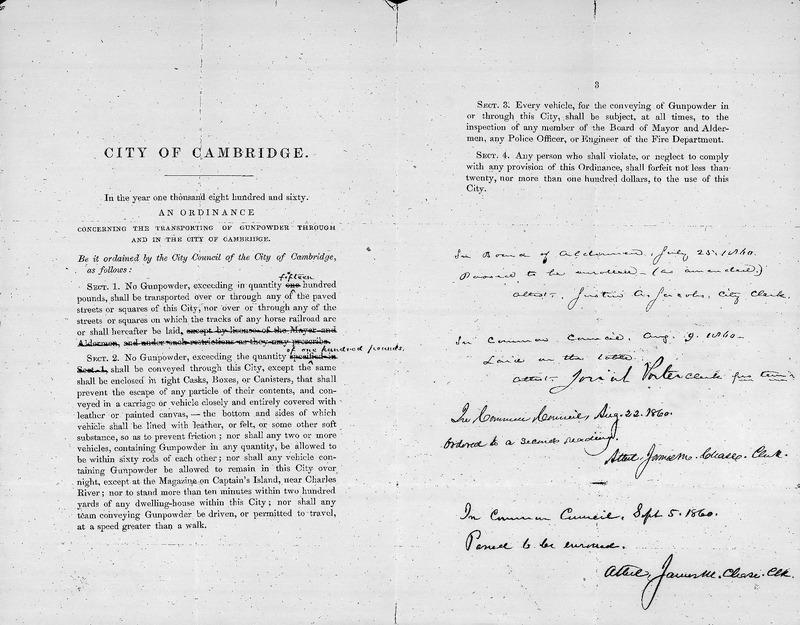 CITY OF CAMBRIDGE.
In the year one thousand eight hundred and sixty.
AN ORDINANCE
CONCERNING THE TRANSPORTING OF GUNPOWDER THROUGH
AND IN THE CITY OF CAMBRIDGE.
Be it ordained by the City Council of the City of Cambridge,
as follows:
fifteen
SECT. 1. No Gunpowder, exceeding in quantity one hundred
pounds, shall be transported over or through any of the paved
streets or squares of this City, nor over or through any of the
streets or squares on which the tracks of any horse railroad are
or shall hereafter be laid, except by license of the Mayor and
Aldermen, and under such restrictions as they may prescribe.
of one hundred pounds,
SECT. 2. No Gunpowder, exceeding the quantity specified in
Sect. 1, shall be conveyed through this City, except the same
shall be enclosed in tight Casks, Boxes, or Canisters, that shall
prevent the escape of any particle of their contents, and con-
veyed in a carriage or vehicle closely and entirely covered with
leather or painted canvas, — the bottom and sides of which
vehicle shall be lined with leather, or felt, or some other soft
substance, so as to prevent friction; nor shall any two or more
vehicles, containing Gunpowder in any quantity, be allowed to
be within sixty rods of each other; nor shall any vehicle con-
taining Gunpowder be allowed to remain in this City over
night, except at the Magazine on Captain's Island, near Charles
River; nor to stand more than ten minutes within two hundred
yards of any dwelling-house within this City; nor shall any
team conveying Gunpowder be driven, or permitted to travel,
at a speed greater than a walk.
3
SECT. 3. Every vehicle, for the conveying of Gunpowder in
or through this City, shall be subject, at all times, to the
inspection of any member of the Board of Mayor and Alder-
men, any Police Officer, or Engineer of the Fire Department.
SECT. 4. Any person who shall violate, or neglect to comply
with any provision of this Ordinance, shall forfeit not less than
twenty, nor more than one hundred dollars, to the use of this
City.
In Board of Aldermen, July 25, 1860.
Passed to be enrolled — (as amended.)
attest. Justin A. Jacobs, City Clerk.
In Common Council, Aug. 9. 1860.
Laid on the table.
attest — Josiah Porter clerk pro tem
In Common Council, Aug. 22. 1860.
Ordered to a second reading.
Attest James M. Chase. Clerk.
In Common Council, Sept 5. 1860.
Passed to be enrolled.
Attest, James M. Chase. Clk.